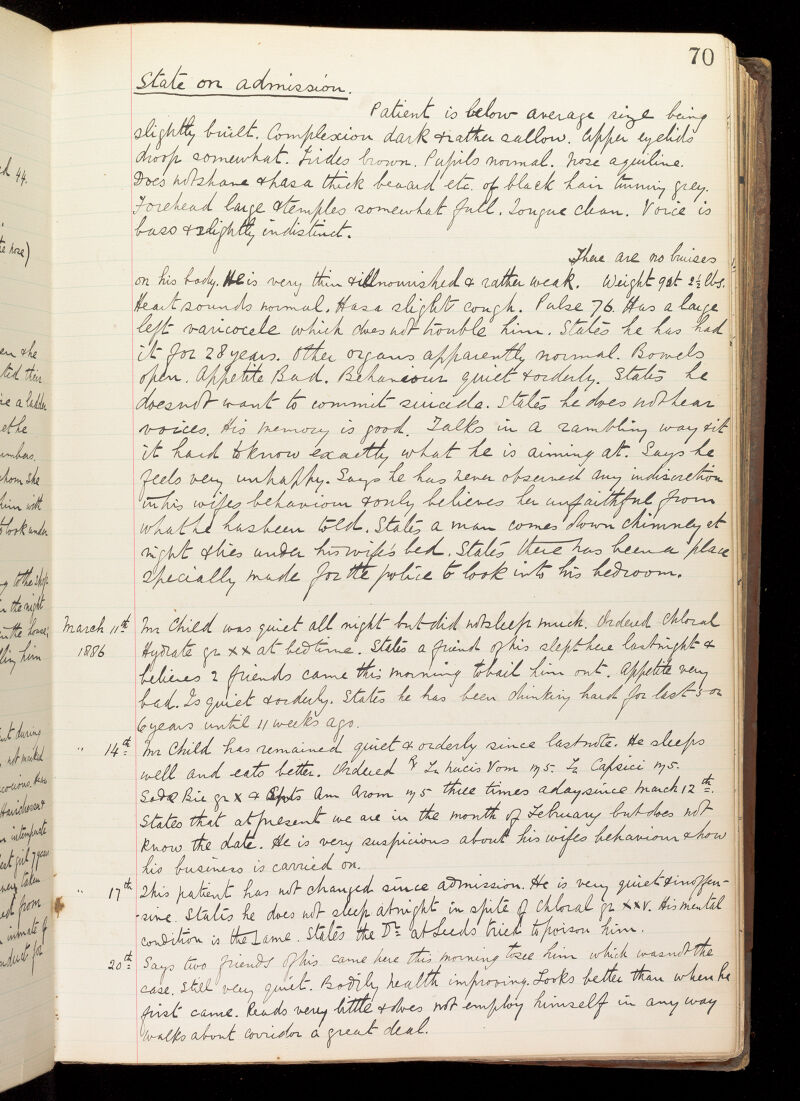 70
State on admission.
Patient is below average size being
slightly built. Complexion dark & rather sallow. Upper eyelids
droop somewhat. Irides brown. Pupils normal. Nose aquiline.
Does not shave & has a thick beard etc. of black hair turning grey.
Forehead large & temples somewhat full. Tongue clean. Voice is
bass & slightly indistinct.
There are no bruises
on his body. He is very thin & illnourished & rather weak. Weight 9st 2½ lbs.
Heart sounds normal. Has a slight cough. Pulse 76. Has a large
left varicocele which does not trouble him. States he has had
it for 28 years. Other organs apparently normal. Bowels
open. Appetite Bad. Behaviour quiet & orderly. States he
does not want to commit suicide. States he does not hear
voices. His memory is good. Talks in a rambling way & it
it hard to know exactly what he is aiming at. Says he
feels very unhappy. Says he has never observed any indiscretion
in his wifes behaviour & only believes her unfaithful from
what he has been told. States a man comes down chimney at
night & lies under his wife's bed. States there has been a place
specially made for the police to look into his bedroom.
March 11th Mr Child was quiet all night but did not sleep much. Ordered Chloral
1886 Hydrate gr xx at bedtime. States a friend of his slept here last night &
believes 2 friends came this morning to bail him out. Appetite very
bad. Is quiet & orderly. States he has been drinking hard for last 5 or
6 years until 11 weeks ago.
" 14th Mr Child has remained quiet & orderly since last note. He sleeps
well and eats better. Ordered ℞ Tr Nucis Vom m5. Tr Capsici m5.
Sodæ Bic gr x & Spts Am Arom m5 three times a day since March 12th.
States that at present we are in the month of February but does not
know the date. He is very suspicious about his wifes behaviour & how
his business is carried on.
" 17th This patient has not changed since admission. He is very quiet & inoffen-
-sive. States he does not sleep at night in spite of Chloral gr xxv. His mental
condition is the same. States the Dr at Leeds tried to poison him.
20th Says two friends of his came here this morning to see him which was not the
case. Still very quiet. Bodily health improving. Looks better than when he
first came. Reads very little & does not employ himself in any way
walks about corridor a great deal.